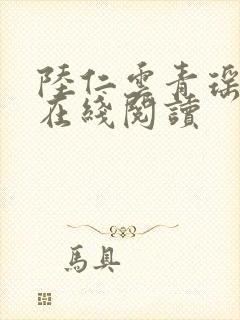 陸仁雲青瑶
在綫閱讀
馬具